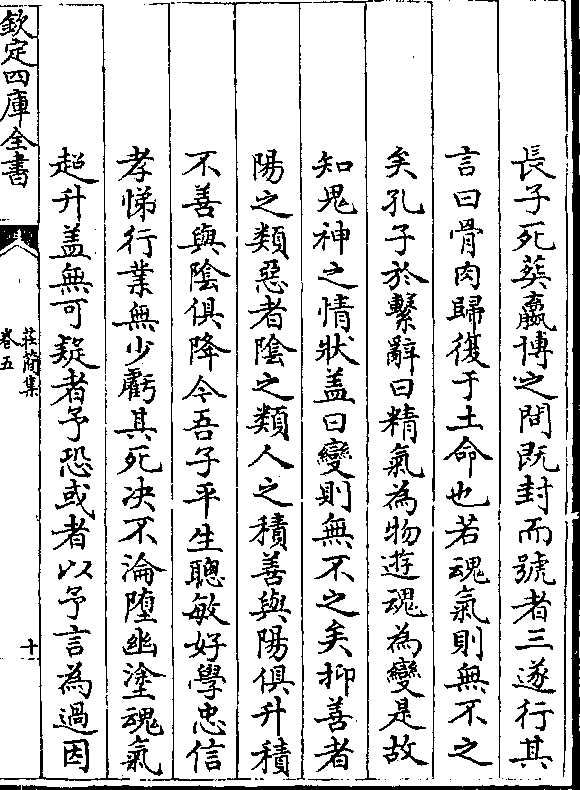 長子死葬嬴博之間既封而號者三遂行其
言曰骨肉歸復于土命也若魂氣則無不之
矣孔子於繫辭曰精氣為物遊魂為變是故
知鬼神之情狀盖曰變則無不之矣抑善者
陽之類惡者陰之類人之積善與陽俱升積
不善與陰俱降今吾子平生聰敏好學忠信
孝悌行業無少虧其死决不淪墮幽塗魂氣
超升盖無可疑者予恐或者以予言為過因
欽定四庫全書
莊簡集
卷五
十